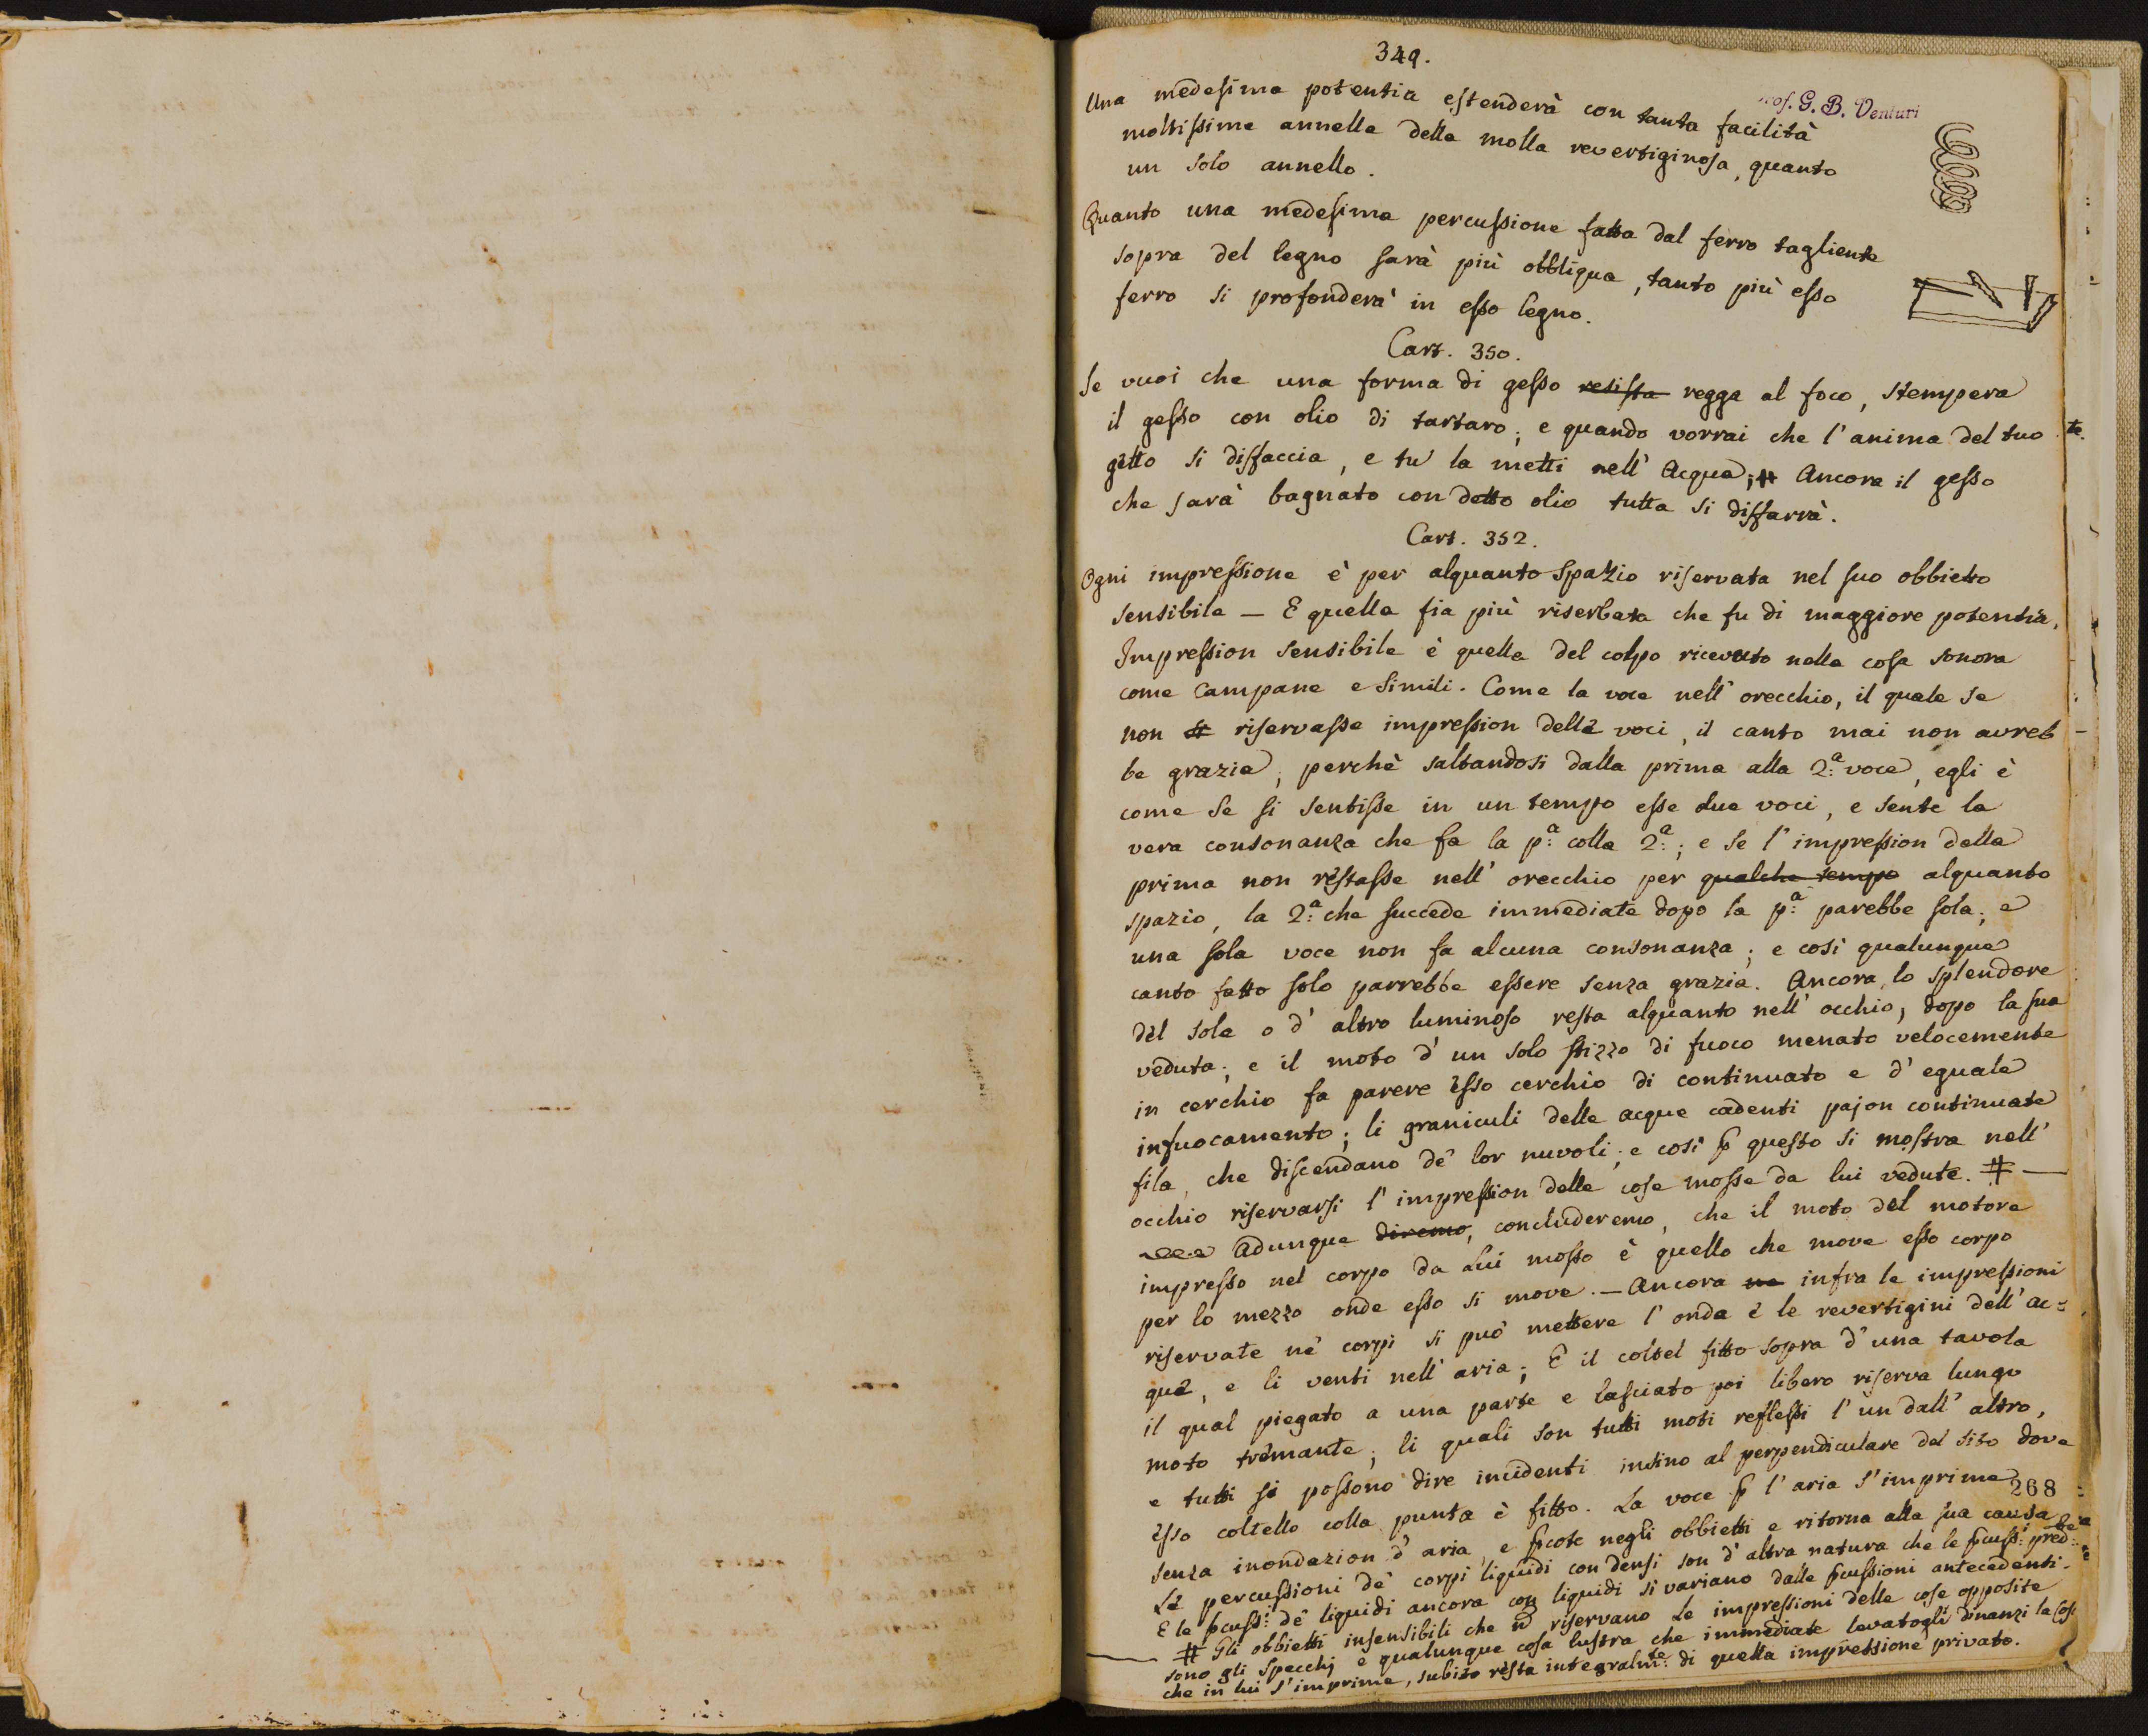 349.
Prof. G. B. Venturi
Una medesima potentia estenderà con tanta facilità
moltissime annella della molla revertiginosa, quanto
un solo annello.
Quanto una medesima percussione fatta dal ferro tagliente
sopra del legno sarà più obbliqua, tanto più esso
ferro si profonderà in esso legno.
Cart. 350.
Se vuoi che una forma di gesso resista regga al foco, stempera
il gesso con olio di tartaro; e quando vorrai che l'anima del tuo
getto si disfaccia, e tu la metti nell'Acqua; # Ancora il gesso
che sarà bagnato con detto olio tutta si disfarrà.
Cart. 352.
Ogni impressione è per alquanto spazio riservata nel suo obbietto
sensibile — E quella fia più riserbata che fu di maggiore potentia.
Impression sensibile è quella del colpo ricevuto nella cosa sonora
come Campane e simili. Come la voce nell'orecchio, il quale se
non riservasse impression delle voci, il canto mai non avreb
be grazia; perchè saltandosi dalla prima alla 2.a voce, egli è
come se si sentisse in un tempo esse due voci, e sente la
vera consonanza che fa la p.a colla 2.a; e se l'impression della
prima non restasse nell'orecchio per qualche tempo alquanto
spazio, la 2.a che succede immediate dopo la p.a parebbe sola; e
una sola voce non fa alcuna consonanza; e così qualunque
canto fatto solo parrebbe essere senza grazia. Ancora lo splendore
del sole o d'altro luminoso resta alquanto nell'occhio, dopo la sua
veduta; e il moto d'un solo stizzo di fuoco menato velocemente
in cerchio fa parere esso cerchio di continuato e d'eguale
infuocamento; li graniculi delle acque cadenti pajon continuate
fila, che discendano de' lor nuvoli; e così p questo si mostra nell'
occhio riservarsi l'impression delle cose mosse da lui vedute. # —
Adunque diremo, concluderemo, che il moto del motore
impresso nel corpo da Lui mosso è quello che move esso corpo
per lo mezzo onde esso si move. — Ancora ne infra le impressioni
riservate ne' corpi si può mettere l'onda e le revertigini dell'ac=
que, e li venti nell'aria; E il coltel fitto sopra d'una tavola
il qual piegato a una parte e lasciato poi libero riserva lungo
moto tremante; li quali son tutti moti reflessi l'un dall'altro,
e tutti si possono dire incidenti insino al perpendiculare del sito dove
esso coltello colla punta è fitto. La voce p l'aria s'imprime
268
senza inondazion d'aria, e pcote negli obbietti e ritorna alla sua causa
Le percussioni de' corpi liquidi con densi son d'altra natura che le pcuss.i pred.te
E le pcuss.i de' liquidi ancora con liquidi si variano dalle pcussioni antecedenti.
# Gli obbietti insensibili che n riservano le impressioni delle cose opposite
sono gli specchj e qualunque cosa lustra che immediate levatogli dinanzi la cosa
che in lui s'imprime, subito resta integralm.te di quella impressione privato.